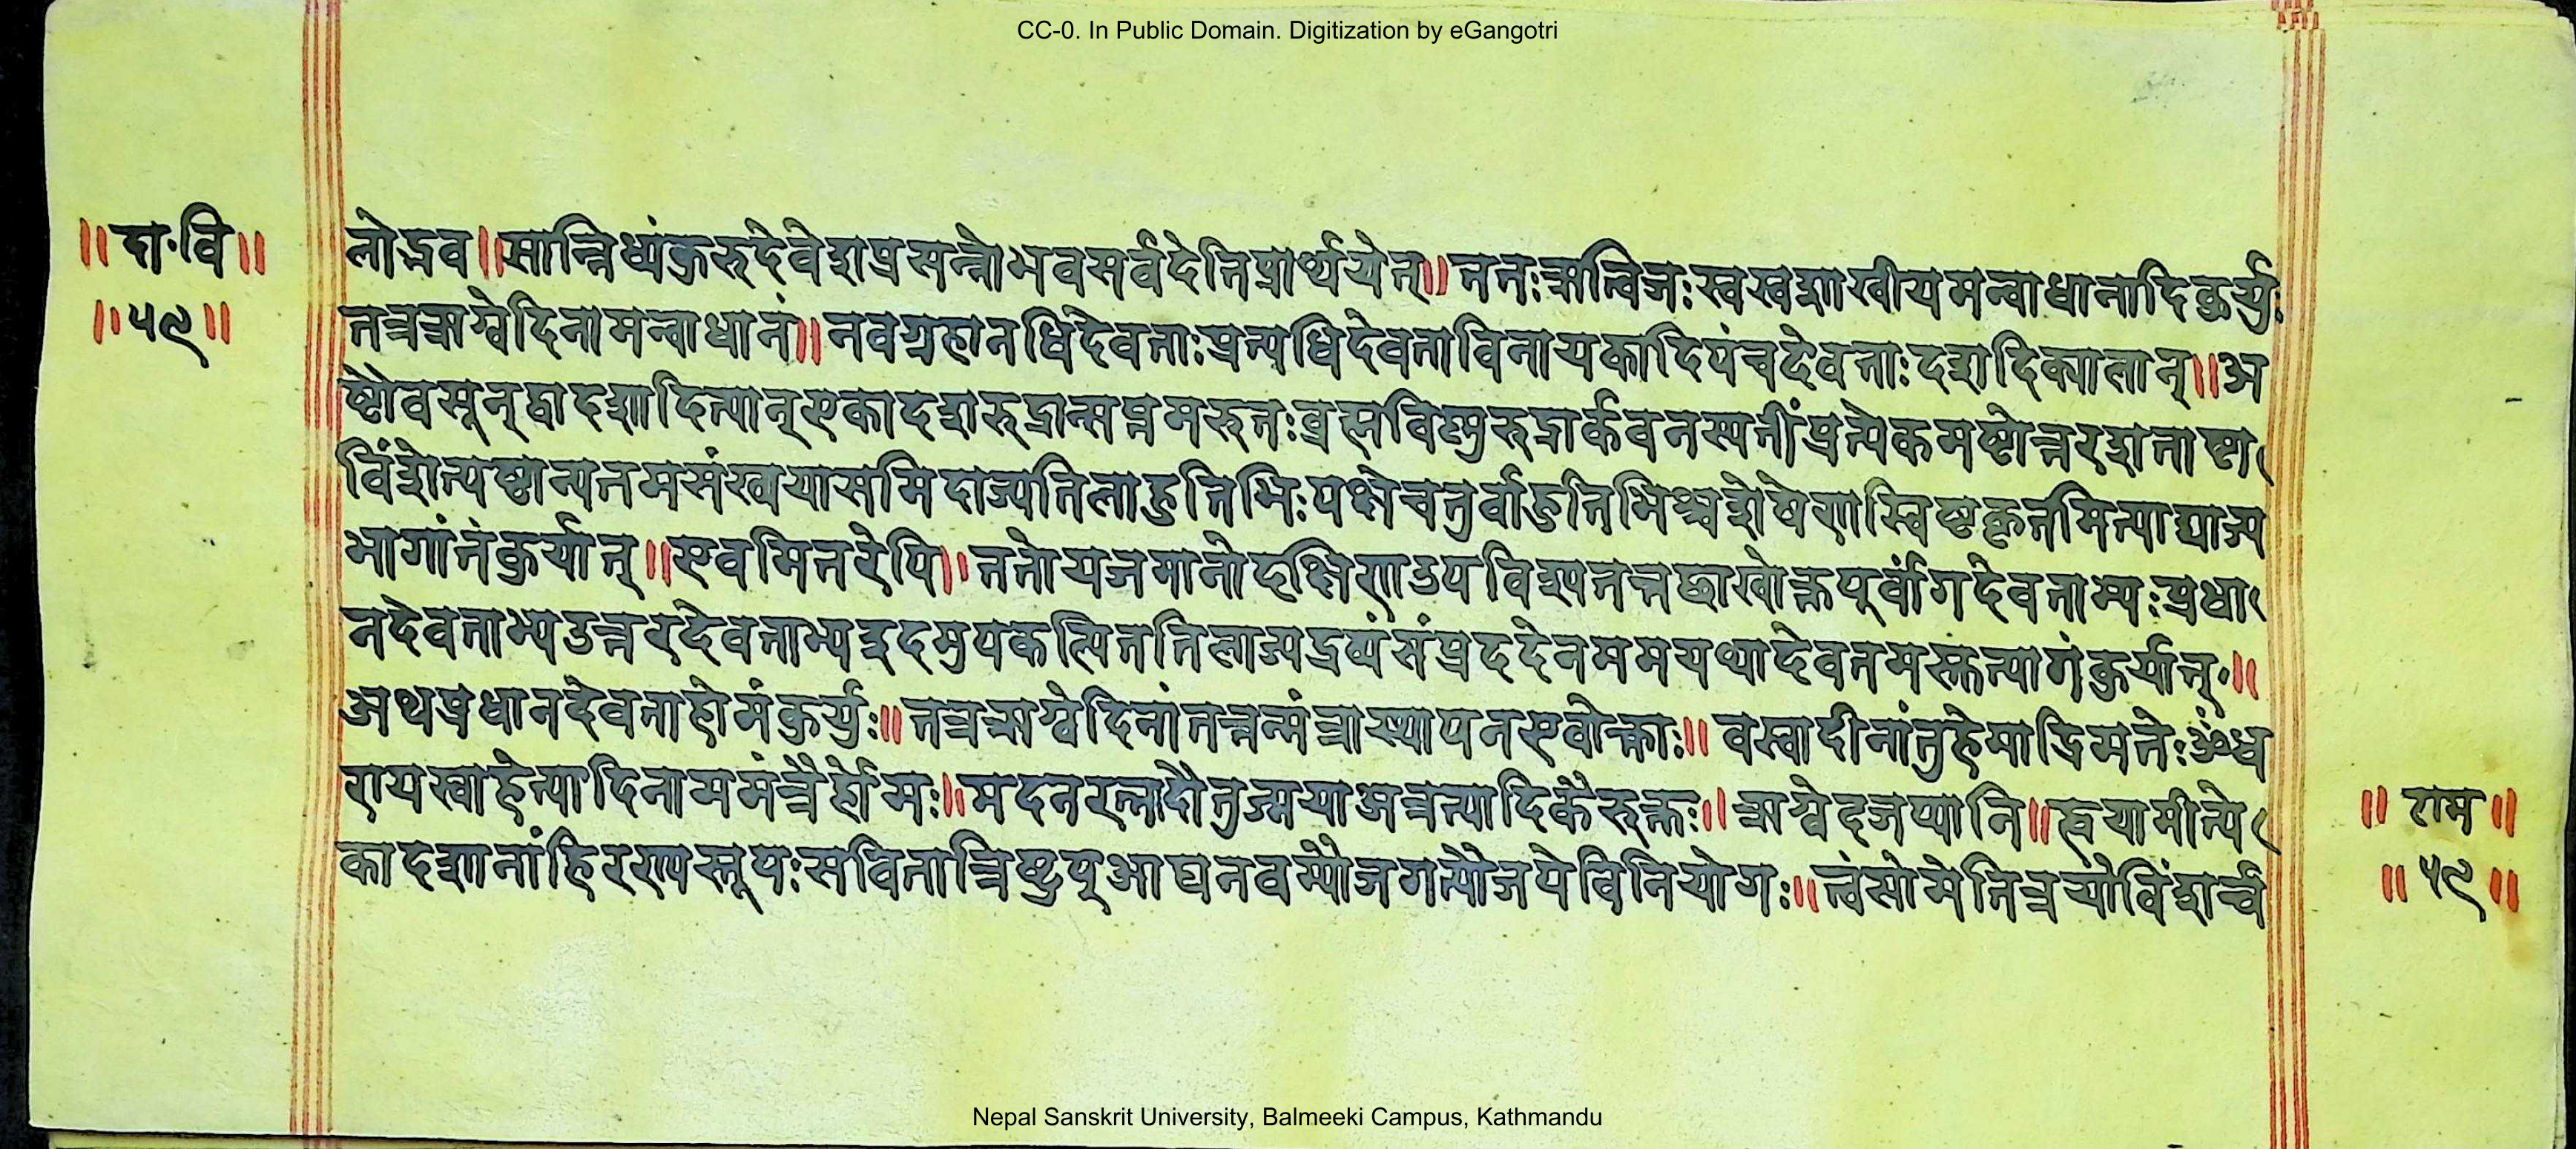 CC-0. In Public Domain. Digitization by eGangotri
॥दा·वि॥
॥५९॥
लोद्भव॥सान्निध्यंकुरुदेवेशप्रसन्नोभवसर्वदेतिप्रार्थयेत्॥ततःऋत्विजःस्वस्वशाखीयमन्वाधानादिकुर्युः
तत्रऋग्वेदिनामन्वाधानं॥नवग्रहानधिदेवताःप्रत्यधिदेवताविनायकादिपंचदेवताःदशदिक्पालान्॥अ
ष्टौवसून्द्वादशादित्यान्एकादशरुद्रान्सप्तमरुतःब्रह्मविष्णुरुद्रार्कवनस्पतींप्रत्येकमष्टोत्तरशताष्टा
विंशोत्यष्टान्यतमसंख्ययासमिदाज्यतिलाहुतिभिःपक्षेचतुर्वाहुतिभिश्चशेषेणस्विष्टकृतमित्याद्याज्य
भागांतंकुर्यात्॥एवमितरेपि॥ततोयजमानोदक्षिणउपविश्यतत्तच्छाखोक्तपूर्वांगदेवताभ्यःप्रधा
नदेवताभ्यउत्तरदेवताभ्यइदमुपकल्पिततिलाज्यद्रव्यंसंप्रददेनममयथादेवतमस्त्वत्यागंकुर्यात्॥
अथप्रधानदेवताहोमंकुर्युः॥तत्रऋग्वेदिनांतत्तन्मंत्राख्यापनएवोक्ताः॥वस्वादीनांतुहेमाद्रिमतेःॐध
रायस्वाहेत्यादिनाममंत्रैर्होमः॥मदनरत्नादौतुज्मयाअत्रत्यादिकैरुक्तः॥ऋग्वेदजप्यानि॥ह्वयामीत्ये
कादशानांहिरण्यस्तूपःसवितात्रिष्टुप्आद्यनवम्यौजगत्यौजपेविनियोगः॥त्वंसोमेतित्रयोविंशर्च
॥राम॥
॥५९॥
Nepal Sanskrit University, Balmeeki Campus, Kathmandu